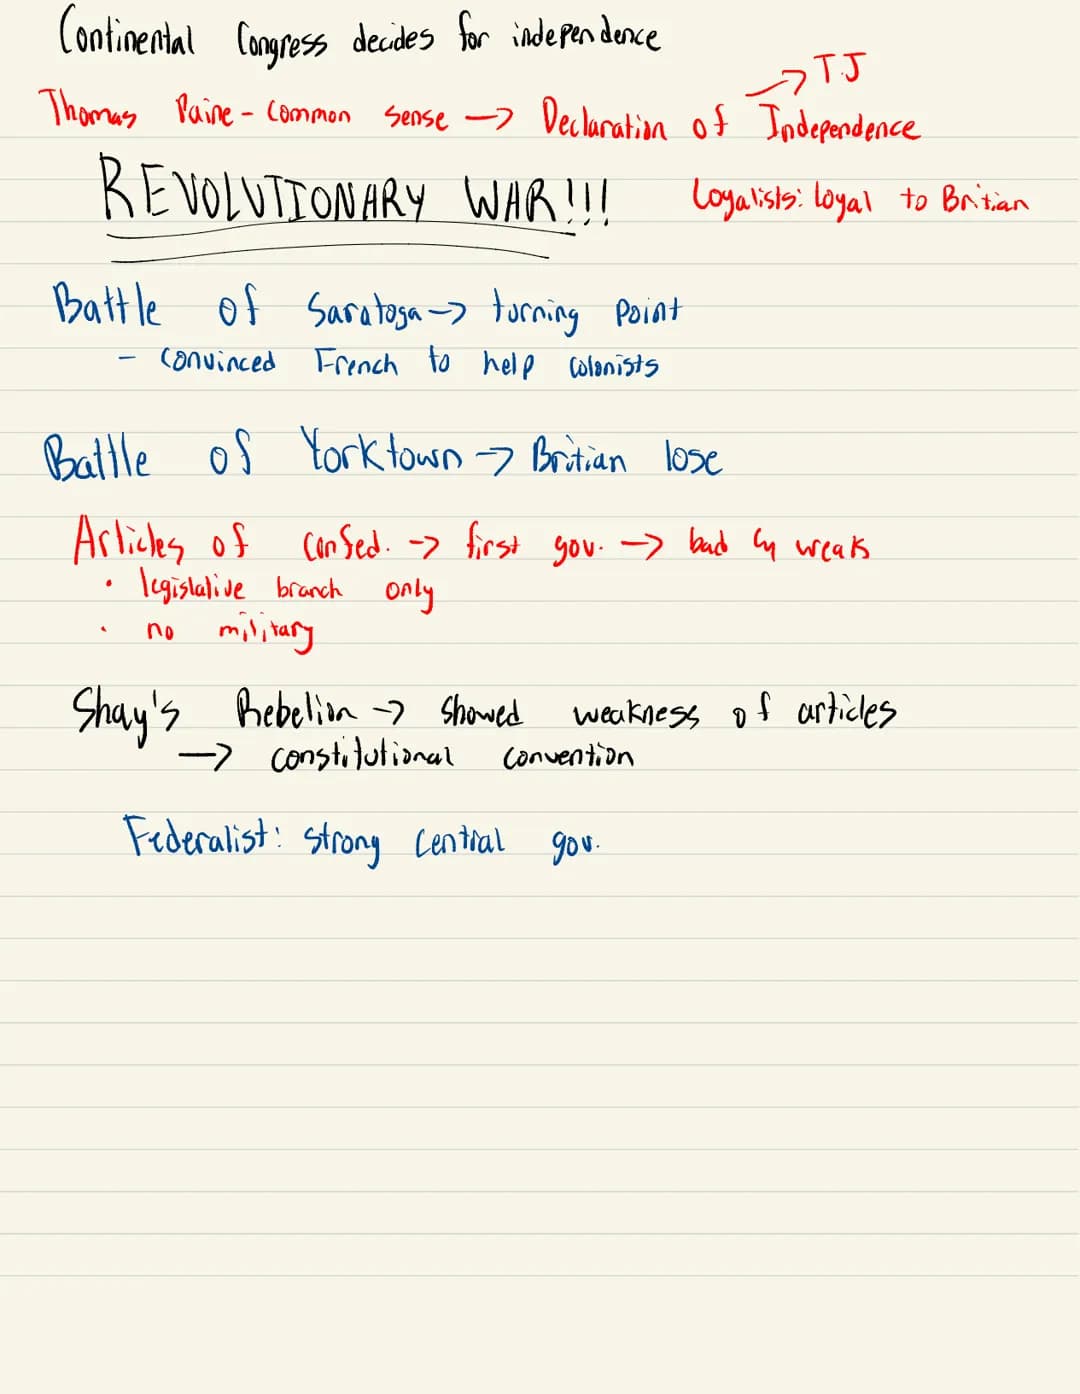 Continental Congress decides for independence
→ TJ
Thomas Paine - Common Sense → Declaration of Independence
REVOLUTIONARY WAR!!!
Loyalists: loyal to Britian
Battle of Saratoga → turning point
- convinced French to help colonists
Battle of Yorktown → Britian lose
Articles of Confed. → first gov. → bad weak
• legislative branch only
• no military
Shay's Rebelion → Showed weakness of articles
→ constitutional convention
Federalist: strong central gov.